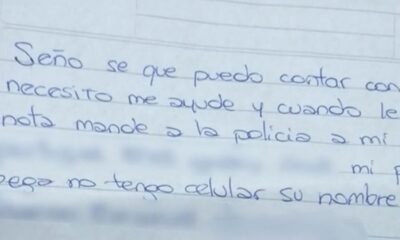 Seño se que puedo contar con
necesito me ayude y cuando le
nota mande a la policia a mi
mi p
pega no tengo celular su nombre